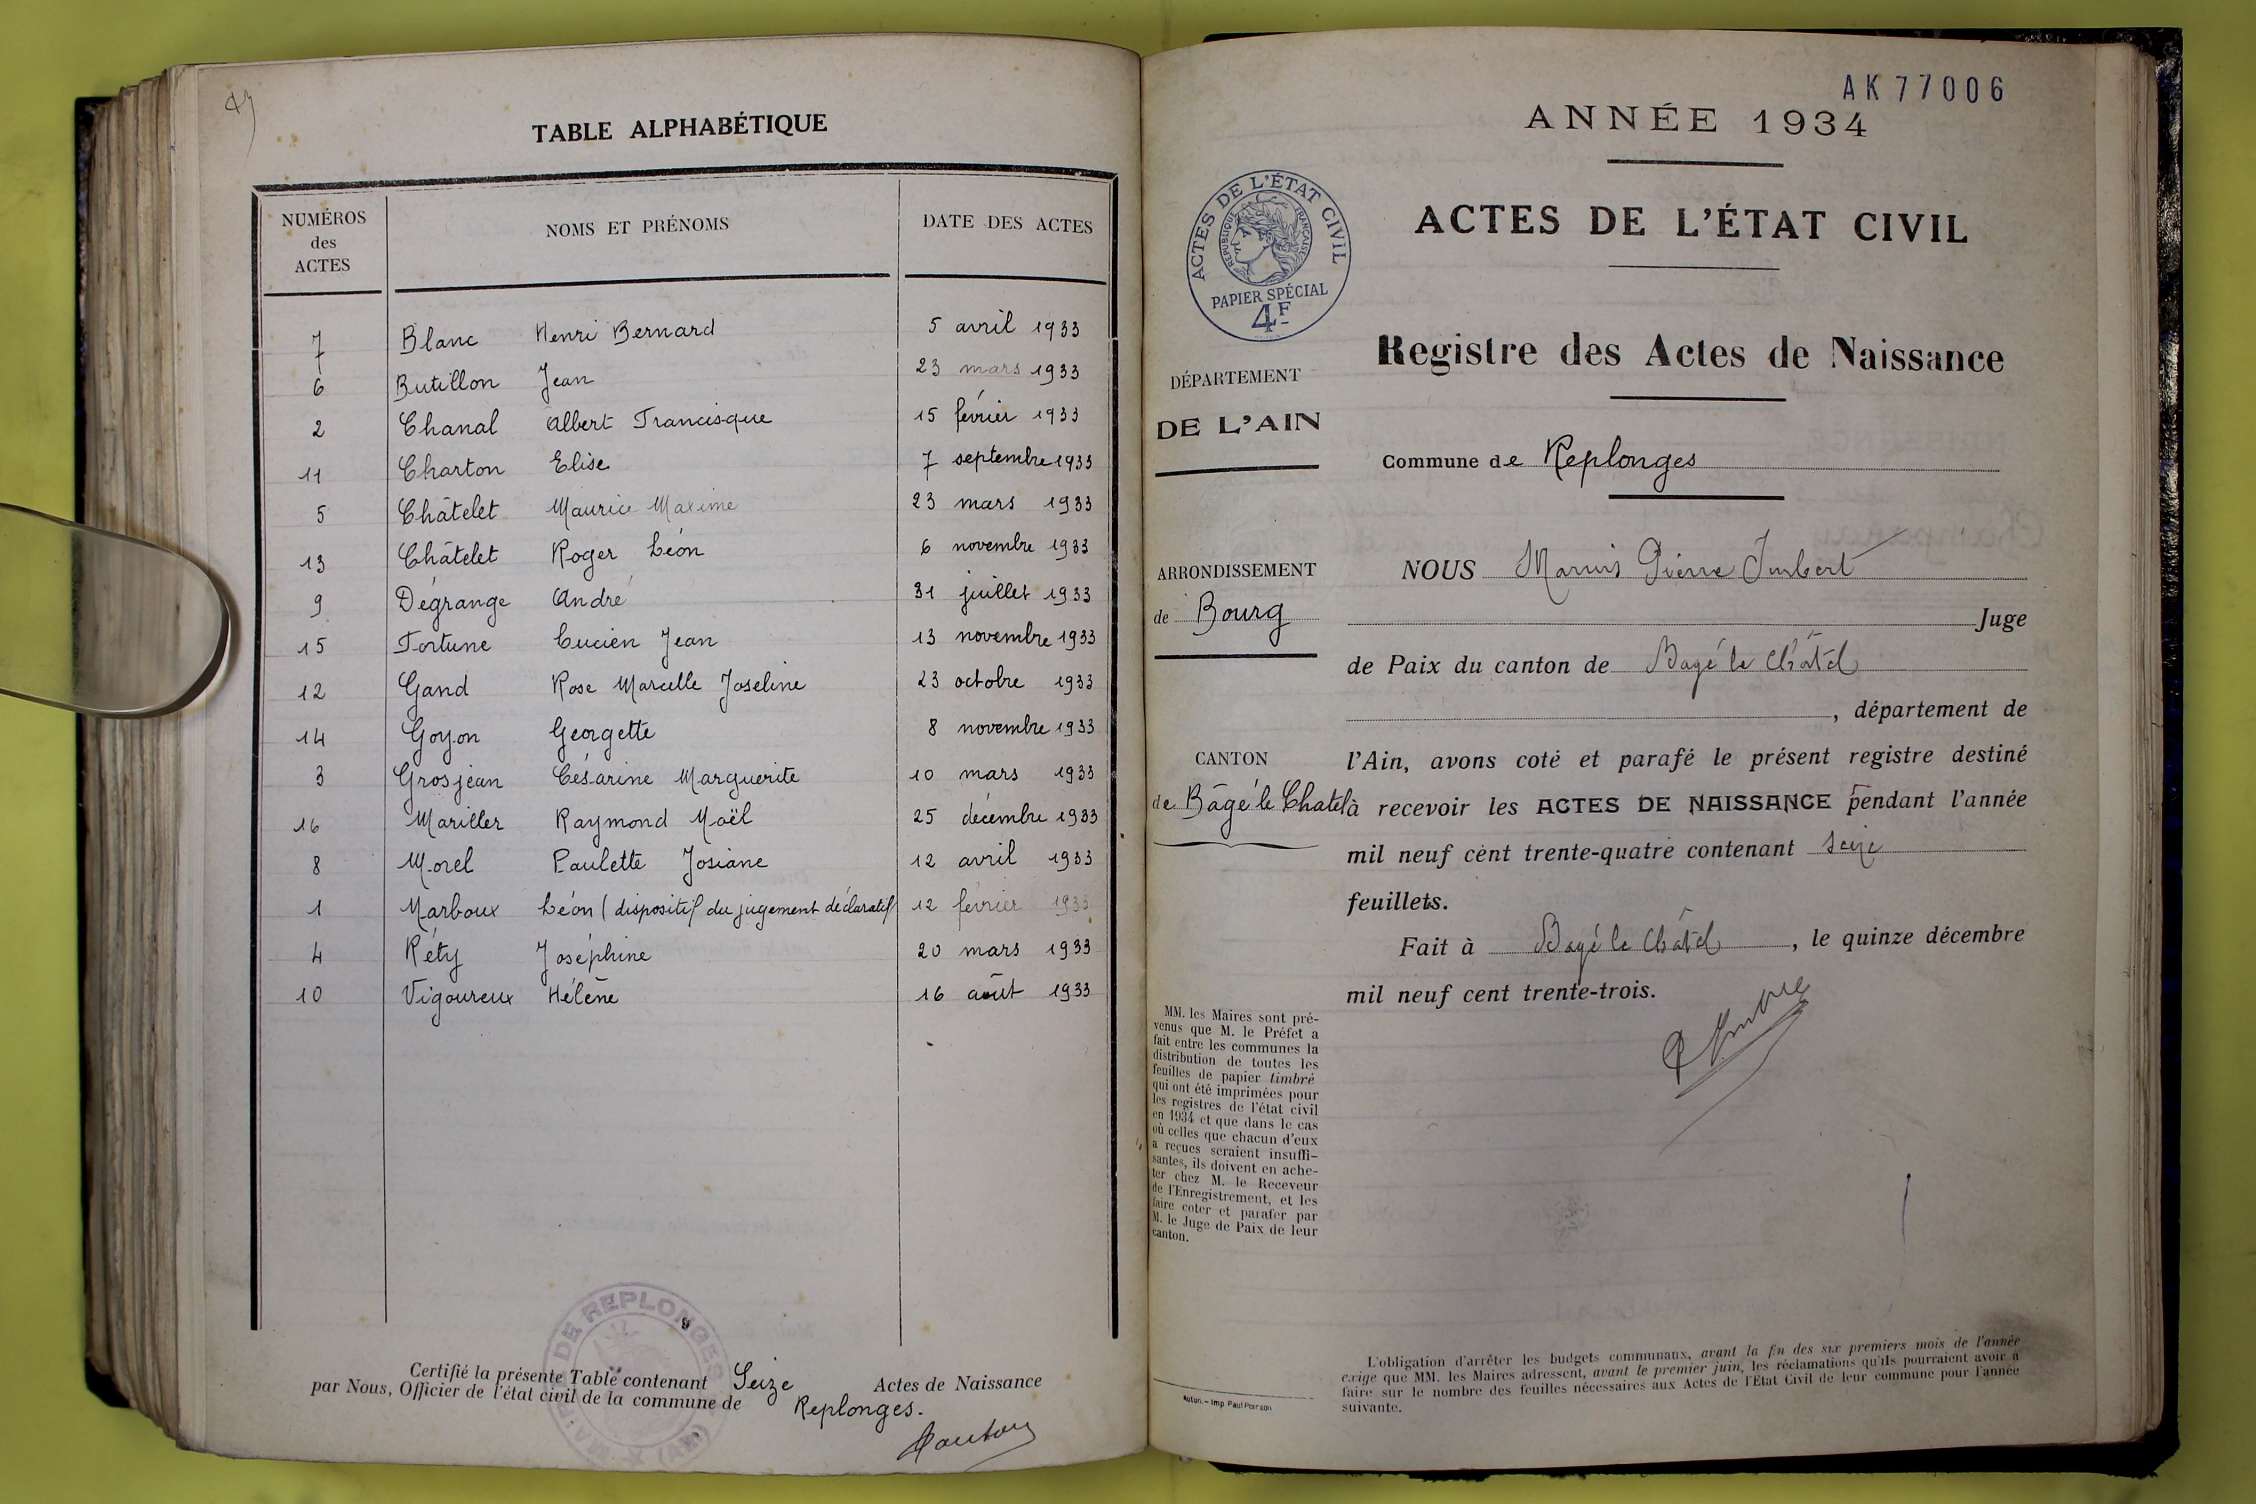 TABLE ALPHABÉTIQUE
NUMÉROS des ACTES NOMS ET PRÉNOMS DATE DES ACTES
7 Blanc Henri Bernard 5 avril 1933
6 Butillon Jean 23 mars 1933
2 Chanal Albert Francisque 15 février 1933
11 Charton Elise 7 septembre 1933
5 Châtelet Maurice Maxime 23 mars 1933
13 Châtelet Roger Léon 6 novembre 1933
9 Dégrange André 31 juillet 1933
15 Fortune Lucien Jean 13 novembre 1933
12 Gand Rose Marcelle Joseline 23 octobre 1933
14 Goyon Georgette 8 novembre 1933
3 Grosjean Césarine Marguerite 10 mars 1933
16 Mariller Raymond Noël 25 décembre 1933
8 Morel Paulette Josiane 12 avril 1933
1 Marboux Léon (dispositif du jugement déclaratif) 12 février 1933
4 Réty Joséphine 20 mars 1933
10 Vigoureux Hélène 16 août 1933
DE REPLONGES
Certifié la présente Table contenant Seize Actes de Naissance
par Nous, Officier de l'état civil de la commune de Replonges.
AK 77006
ANNÉE 1934
ACTES DE L'ÉTAT CIVIL
ACTES DE L'ÉTAT CIVIL
RÉPUBLIQUE FRANÇAISE
PAPIER SPÉCIAL
4F
Registre des Actes de Naissance
DÉPARTEMENT
DE L'AIN
Commune de Replonges
ARRONDISSEMENT
de Bourg
CANTON
de Bâgé le Chatel
NOUS Marius Pierre Imbert
Juge
de Paix du canton de Bagé le Châtel
, département de
l'Ain, avons coté et parafé le présent registre destiné
à recevoir les ACTES DE NAISSANCE pendant l'année
mil neuf cent trente-quatre contenant seize
feuillets.
Fait à Bagé le Châtel, le quinze décembre
mil neuf cent trente-trois.
MM. les Maires sont pré-
venus que M. le Préfet a
fait entre les communes la
distribution de toutes les
feuilles de papier timbré
qui ont été imprimées pour
les registres de l'état civil
en 1934 et que dans le cas
où celles que chacun d'eux
a reçues seraient insuffi-
santes, ils doivent en ache-
ter chez M. le Receveur
de l'Enregistrement, et les
faire coter et parafer par
M. le Juge de Paix de leur
canton.
Autun. – Imp. Paul Poirson
L'obligation d'arrêter les budgets communaux, avant la fin des six premiers mois de l'année
exige que MM. les Maires adressent, avant le premier juin, les réclamations qu'ils pourraient avoir à
faire sur le nombre des feuilles nécessaires aux Actes de l'Etat Civil de leur commune pour l'année
suivante.